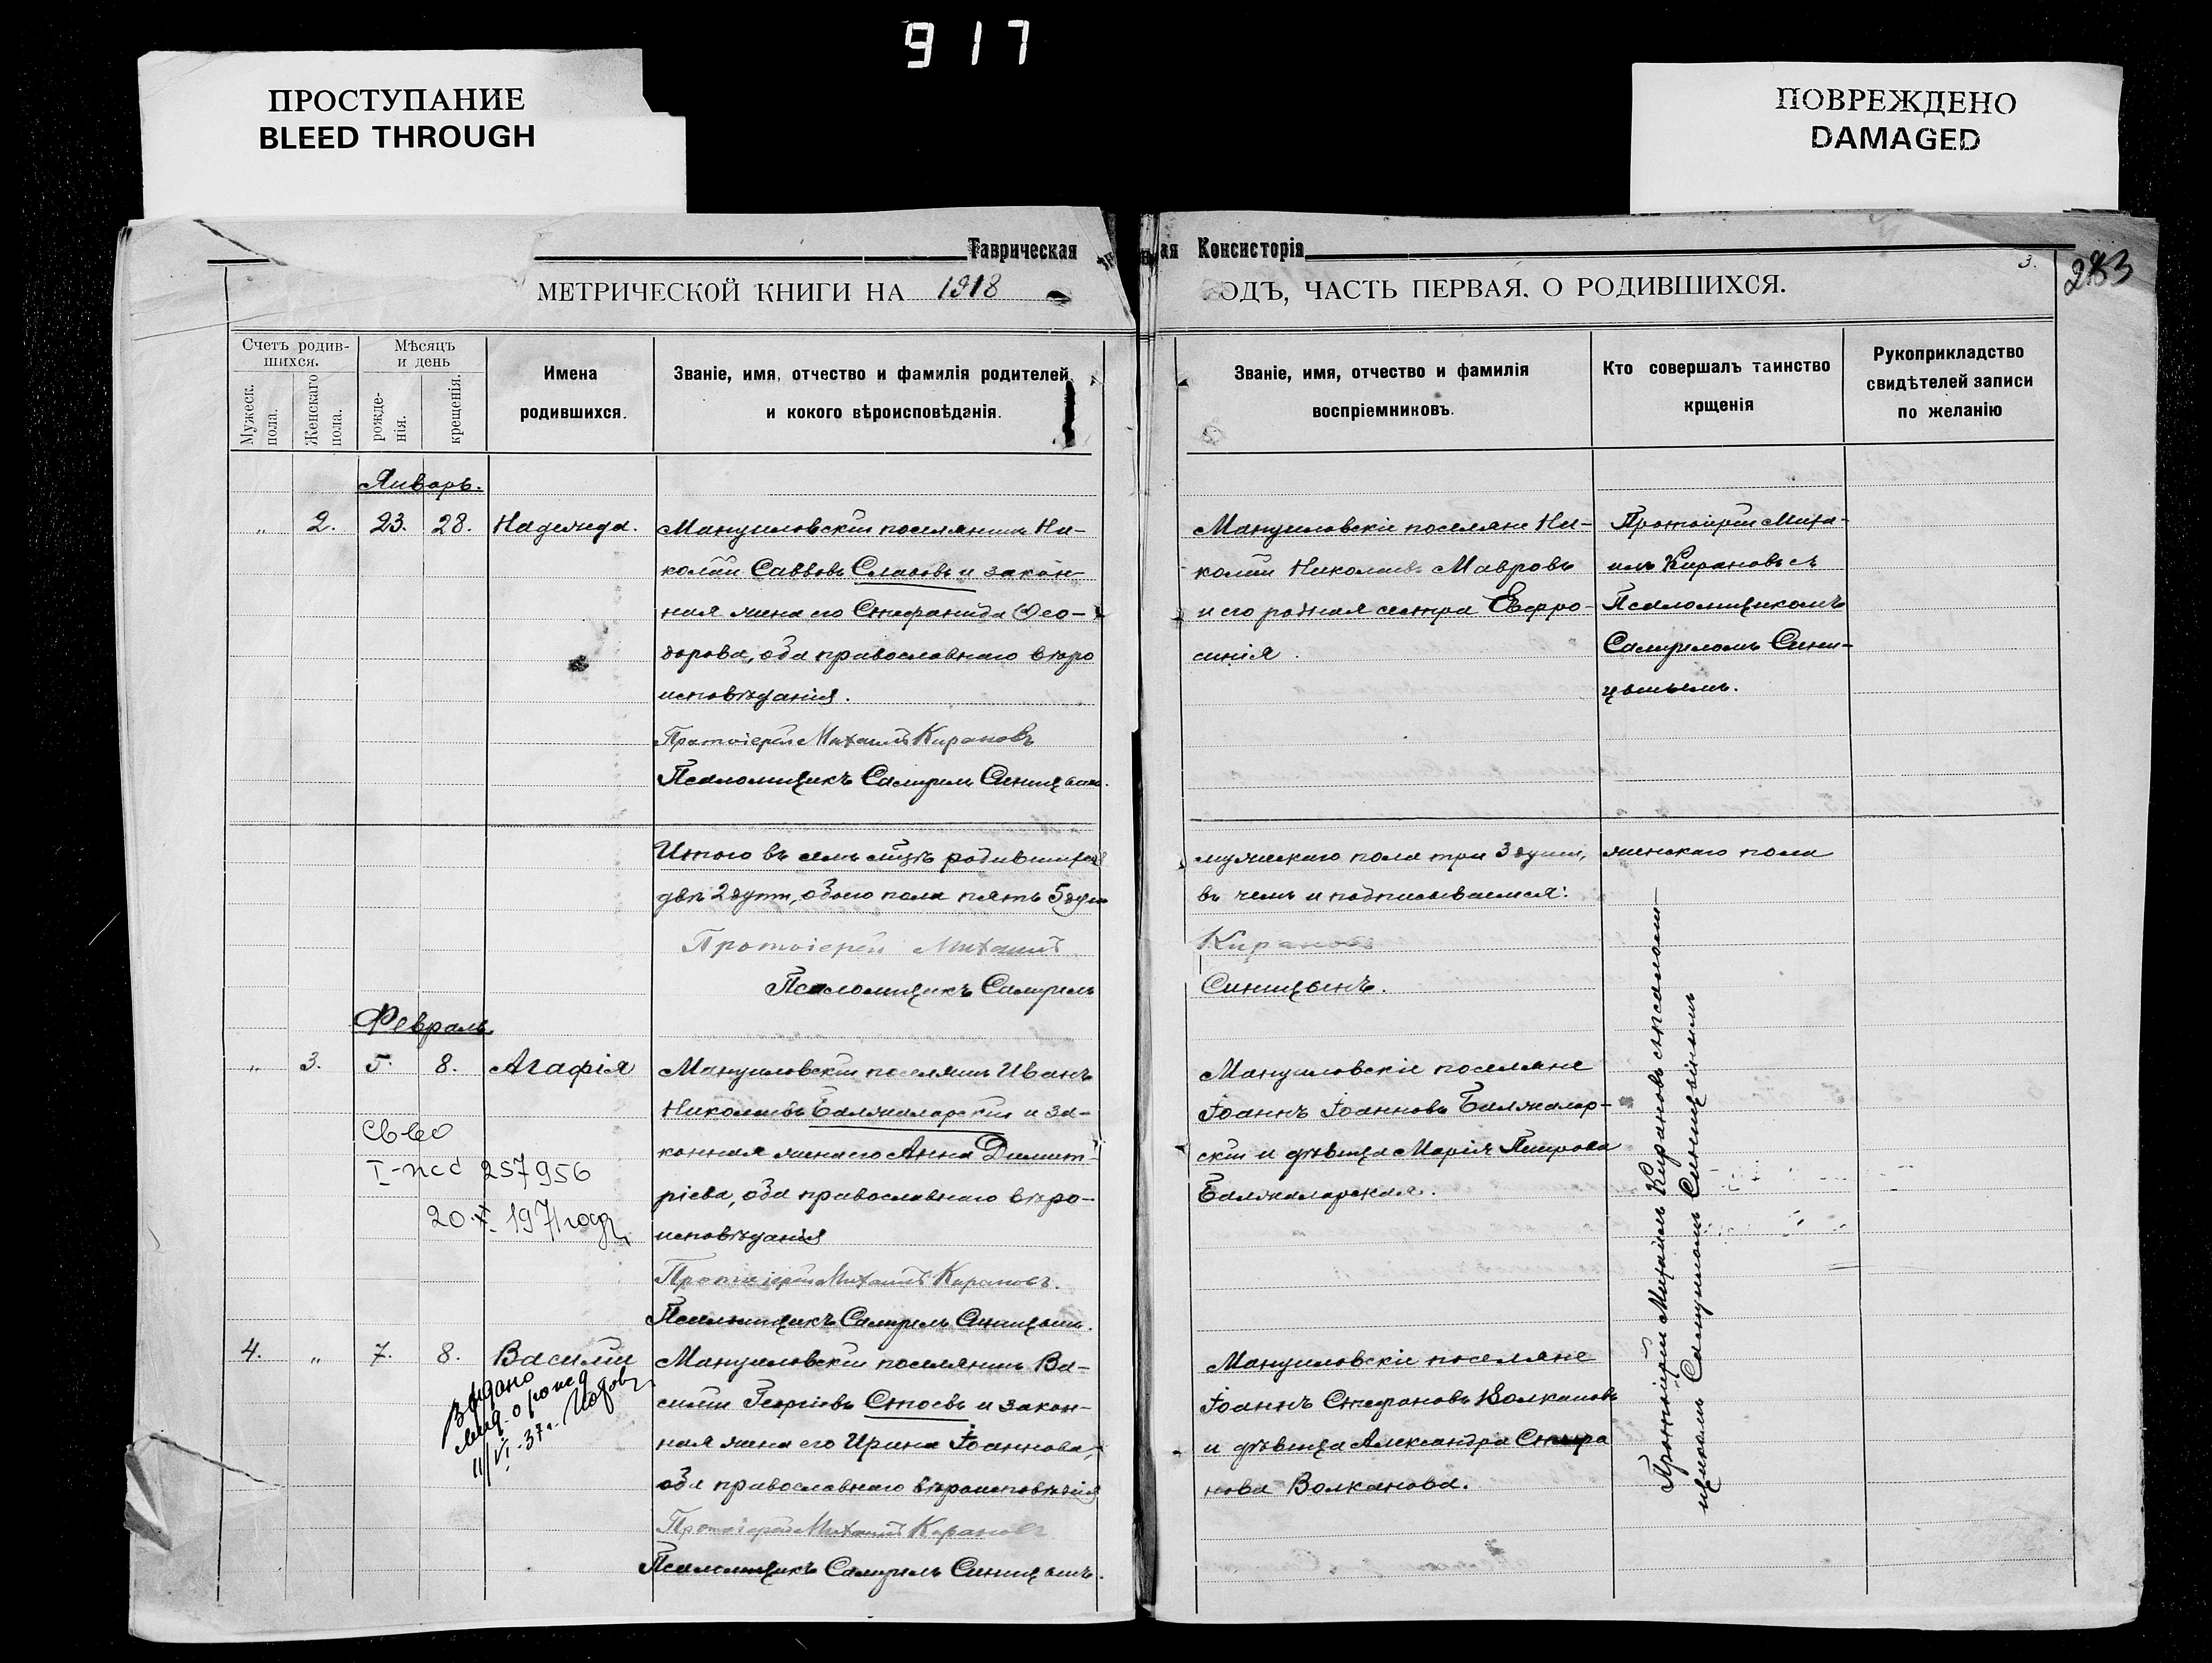 917
ПРОСТУПАНИЕ
BLEED THROUGH
ПОВРЕЖДЕНО
DAMAGED
Таврическая
ая Консисторія
3.
283
МЕТРИЧЕСКОЙ КНИГИ НА 1918
ОДЪ, ЧАСТЬ ПЕРВАЯ. О РОДИВШИХСЯ.
Счетъ родив-
шихся.
Мужеск.
пола.
Женскаго
пола.
Мѣсяцъ
и день
рожде-
нія.
крещенія.
Имена
родившихся.
Званіе, имя, отчество и фамилія родителей
и кокого вѣроисповѣданія.
Званіе, имя, отчество и фамилія
воспріемниковъ.
Кто совершалъ таинство
крщенія
Рукоприкладство
свидѣтелей записи
по желанію
Январь.
" 2. 23. 28. Надежда.
Мануиловскій поселянинъ Ни-
колай Саввовъ Славовъ и закон-
ная жена его Стефанида Ѳео-
дорова, оба православнаго вѣро
исповѣданія.
Протоіерей Михаилъ Кирановъ
Псаломщикъ Самуилъ Синицынъ.
Мануиловскіе поселяне Ни-
колай Николаевъ Мавровъ
и его родная сестра Евфро-
синія.
Протоіерей Миха-
илъ Кирановъ съ
Псаломщикомъ
Самуиломъ Сини-
цынымъ.
Итого въ семъ м-цѣ родившихся
мужескаго пола три 3 души, женскаго пола
двѣ 2 души, обоего пола пять 5 душ
въ чемъ и подписываемся:
Протоіерей Михаилъ
Кирановъ
Псаломщикъ Самуилъ
Синицынъ.
Февраль
" 3. 5. 8. Агафія
Мануиловскій поселянинъ Иванъ
Николаевъ Балжаларскій и за-
конная жена его Анна Димит-
ріева, оба православнаго вѣро-
исповѣданія
Протоіерей Михаилъ Кирановъ.
Псаломщикъ Самуилъ Синицынъ.
I-пс 257956
20.XI. 1971 года
Мануиловскіе поселяне
Іоаннъ Іоанновъ Балжалар-
скій и дѣвица Марія Петрова
Балжаларская.
Протоіерей Михаилъ Кирановъ съ псалом-
щикомъ Самуиломъ Синицынымъ
4. " 7. 8. Василій
Мануиловскій поселянинъ Ва-
силій Георгіевъ Стоевъ и закон-
ная жена его Ирина Іоаннова,
оба православнаго вѣроисповѣданія
Протоіерей Михаилъ Кирановъ
Псаломщикъ Самуилъ Синицынъ.
Выдано
11/VI-37 г.
Мануиловскіе поселяне
Іоаннъ Стефановъ Волкановъ
и дѣвица Александра Стефа
нова Волканова.